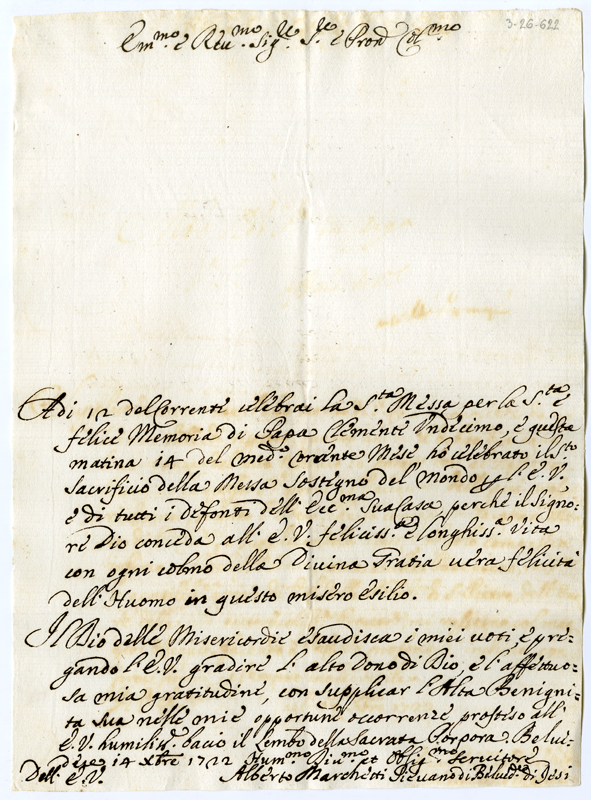 3-26-622
Em.mo e Reu.mo Sig.re S.re e Pron Col.mo
Adi 12 del Corrente celebrai la S.ta Messa per la S.ta e
felice Memoria di Papa Clemente Undecimo, e questa
matina 14 del med.o corrente Mese ho celebrato il S.to
Sacrificio della Messa Sostegno del Mondo per l'E.V.
e di tutti i defonti dell'Ecc.ma Sua Casa, perche il Signo:
re Dio conceda all'E.V. feliciss.a e longhiss.a Vita
con ogni colmo della Divina Gratia vera felicità
dell'Huomo in questo misero esilio.
Il Dio delle Misericordie esaudisca i miei voti, e pre-
gando l'E.V. gradire l'alto Dono di Dio, e l'affettuo-
sa mia gratitudine, con supplicar l'Alta Benigni-
ta sua nelle mie opportune occorrenze prostrso all'
E.V. humiliss.o bacio il Lembo della Sacrata Porpora Belue-
dere 14 Xbre 1722 Hum.mo Diu.mo et Oblig.mo Seruitore
Dell'E.V. Alberto Marchetti Pieuano di Belued.re di Jesi